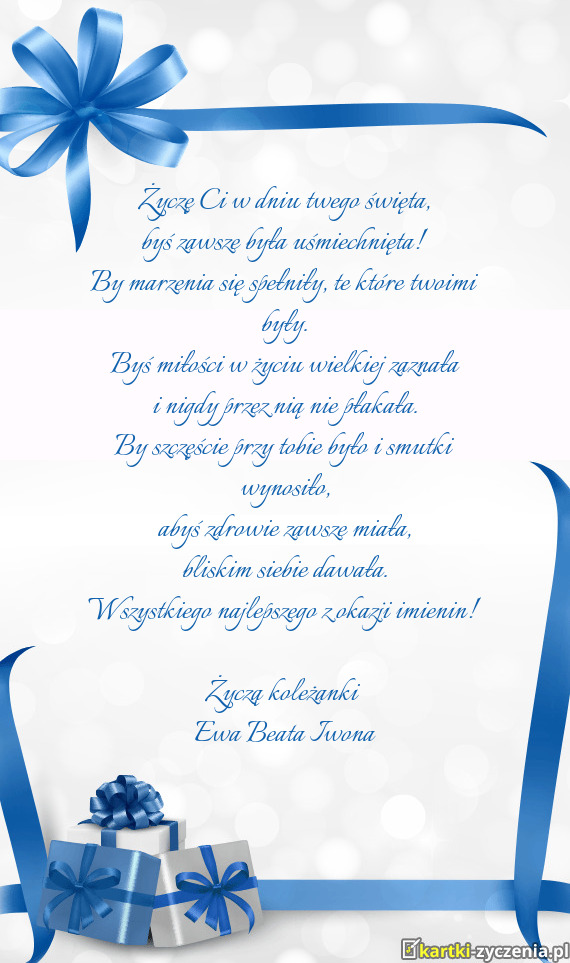 Życzę Ci w dniu twego święta,
byś zawsze była uśmiechnięta!
By marzenia się spełniły, te które twoimi
były.
Byś miłości w życiu wielkiej zaznała
i nigdy przez nią nie płakała.
By szczęście przy tobie było i smutki
wynosiło,
abyś zdrowie zawsze miała,
bliskim siebie dawała.
Wszystkiego najlepszego z okazji imienin!
Życzą koleżanki
Ewa Beata Iwona
kartki-zyczenia.pl